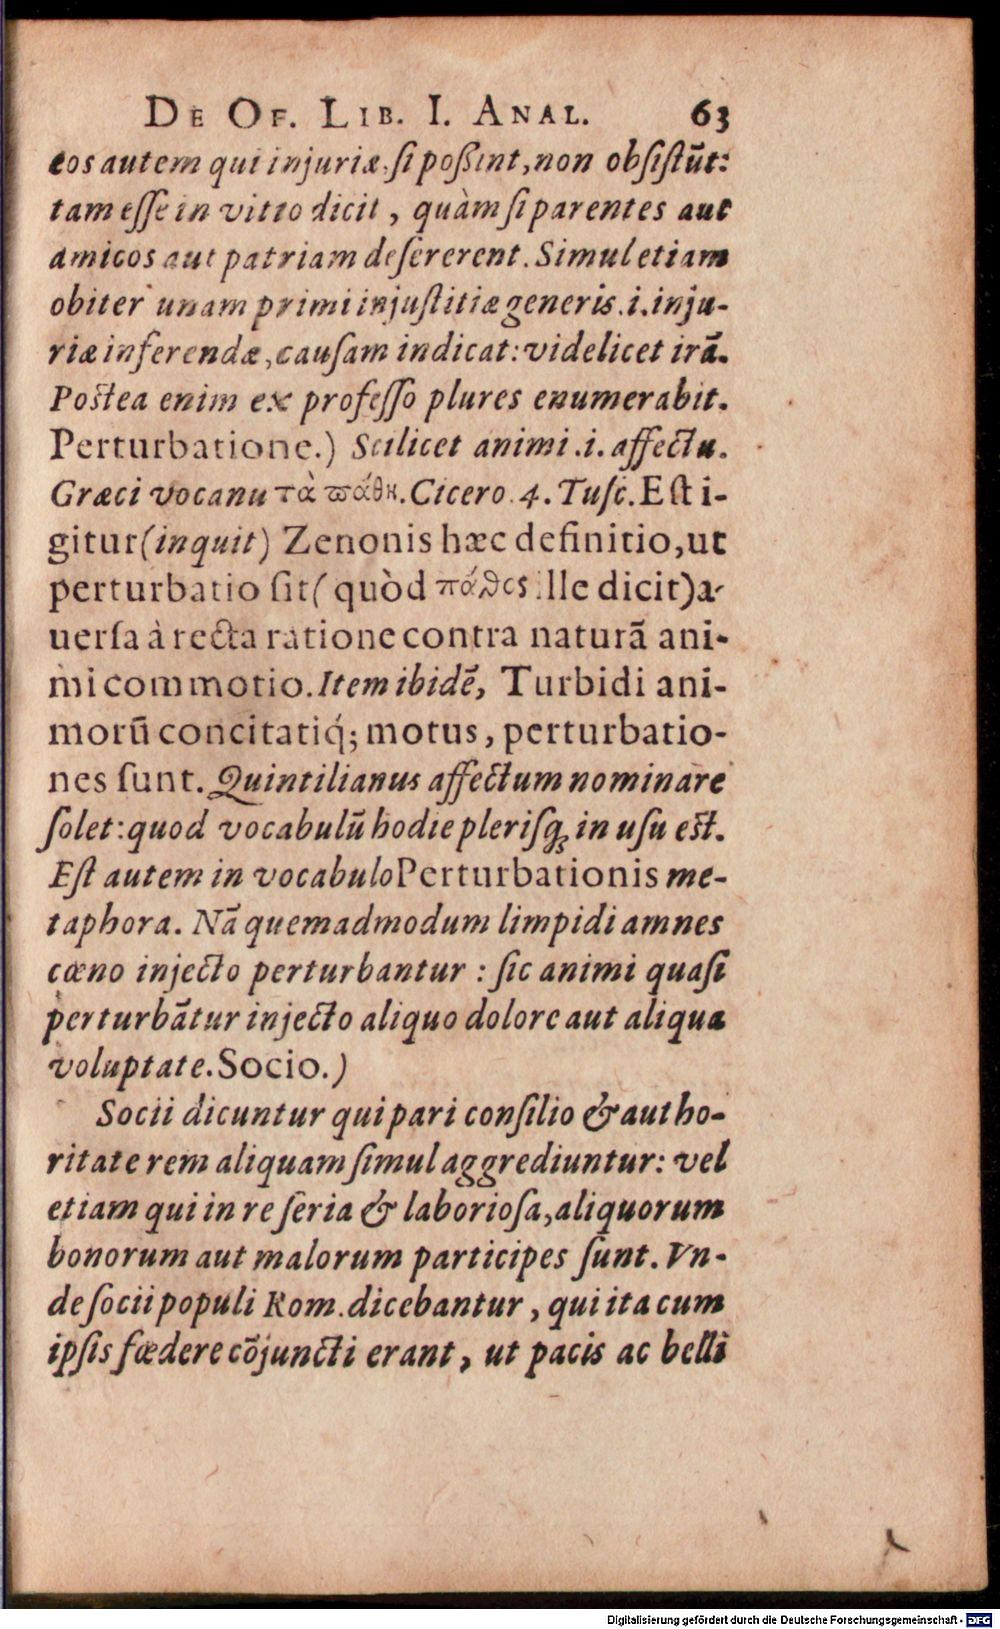 DE OF. LIB. I. ANAL. 63
eos autem qui injuriæ, si poßint, non obsistūt:
tam esse in vitio dicit, quàm si parentes aut
amicos aut patriam desererent. Simul etiam
obiter unam primi injustitiæ generis .i. inju-
riæ inferendæ, causam indicat: videlicet irā.
Postea enim ex professo plures enumerabit.
Perturbatione.) Scilicet animi .i. affectu.
Græci vocanu τὰ ϖάθη. Cicero. 4. Tusc. Est i-
gitur (inquit) Zenonis hæc definitio, ut
perturbatio sit (quòd πάθος ille dicit) a-
uersa à recta ratione contra naturā ani-
mi commotio. Item ibidē, Turbidi ani-
morū concitatiq́; motus, perturbatio-
nes sunt. Quintilianus affectum nominare
solet: quod vocabulū hodie plerisq; in usu est.
Est autem in vocabulo Perturbationis me-
taphora. Nā quemadmodum limpidi amnes
cœno injecto perturbantur: sic animi quasi
perturbātur injecto aliquo dolore aut aliqua
voluptate. Socio.)
Socii dicuntur qui pari consilio & autho-
ritate rem aliquam simul aggrediuntur: vel
etiam qui in re seria & laboriosa, aliquorum
bonorum aut malorum participes sunt. Vn-
de socii populi Rom. dicebantur, qui ita cum
ipsis fœdere cōjuncti erant, ut pacis ac belli
Digitalisierung gefördert durch die Deutsche Forschungsgemeinschaft - DFG